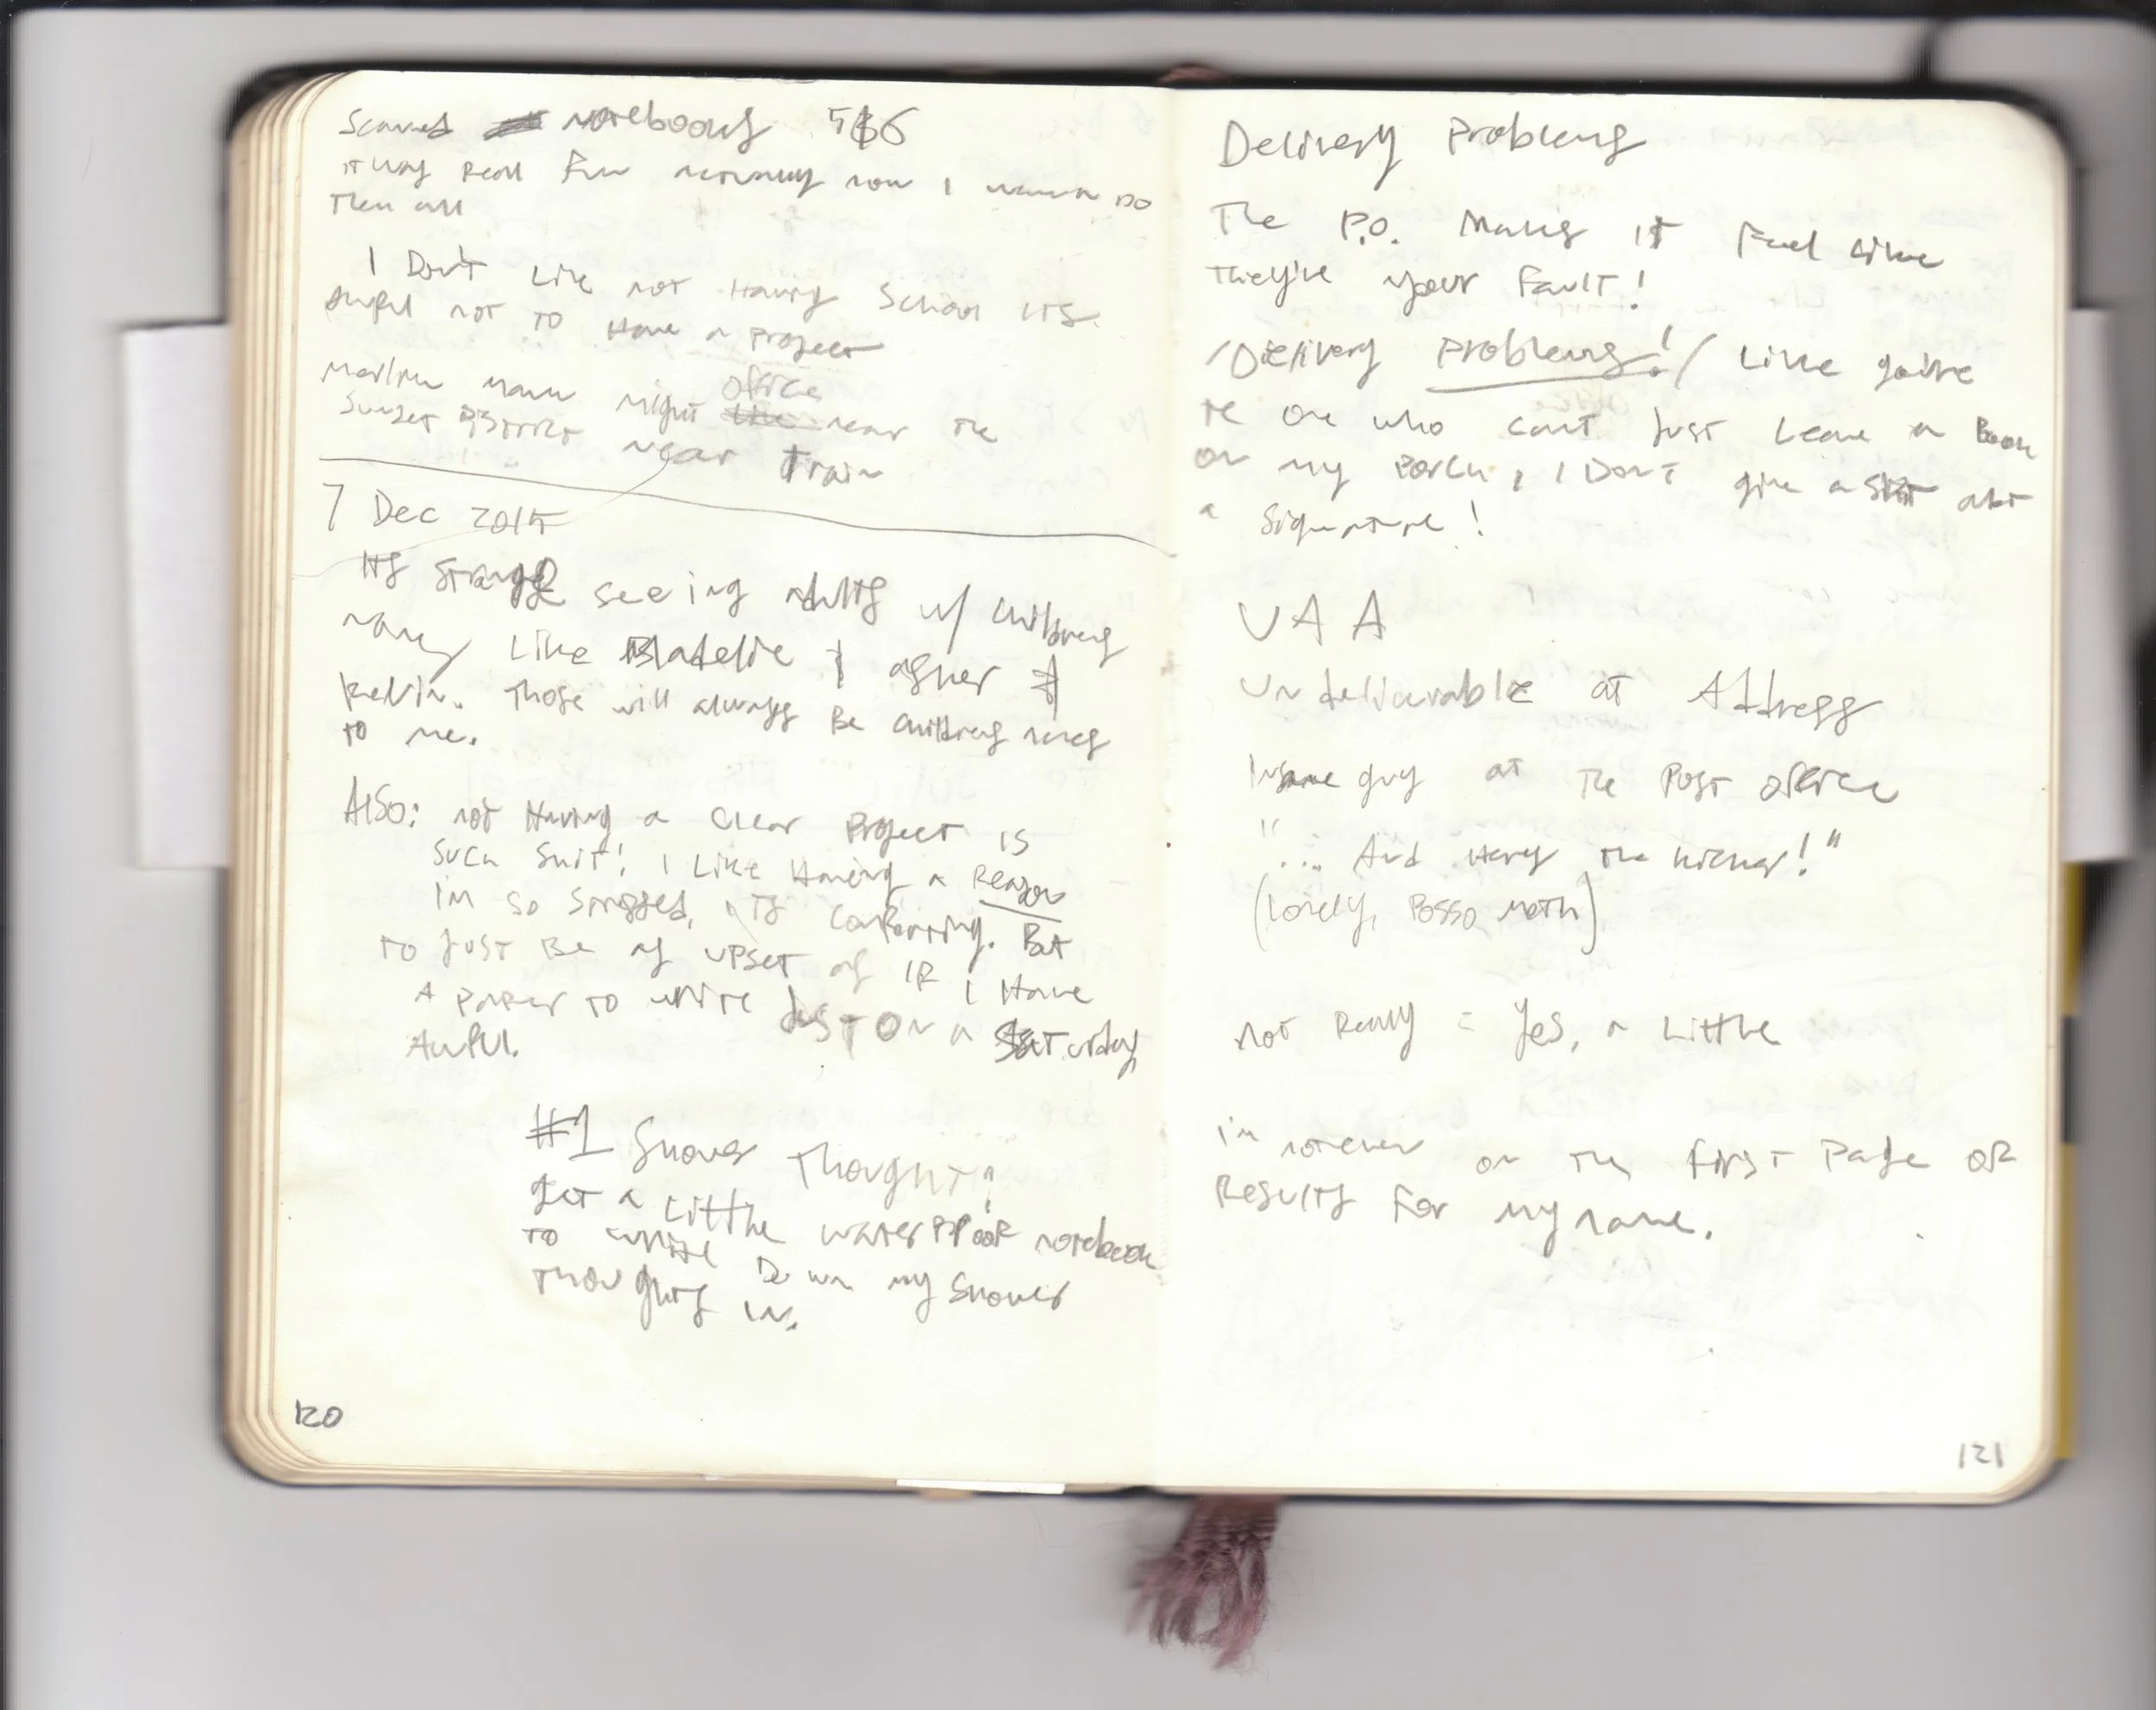 Scanned notebooks 5&6
it was real fun actually now I wanna do
them all
I Don't Like not Having School its
Awful not to Have a project
office
might near the
Sunset District near Train
7 Dec 2015
Its strange seeing adults w/ childrens
names Like & Asher &
Kelvin. Those will always Be childrens names
to me.
Also: not Having a clear Project is
Such shit! I Like Having a Reason
I'm so stressed, its comforting. But
to Just Be as upset as if I Have
A paper to write Just on a Saturday
Awful.
#1 Shower Thought:
get a Little waterproof notebook
to write Down my Shower
thoughts in.
120
Delivery Problems
The P.O. Makes it Feel Like
They're your Fault!
/Delivery Problems!/ Like you're
the one who can't Just Leave a Book
on my Porch, I Don't give a shit abt
a signature!
UAA
Undeliverable at Address
Insane guy at the Post office
"... And Here's the kicker!"
(Lonely, Poss. meth)
not Really = Yes, a Little
i'm not even on the first Page of
Results for my name.
121